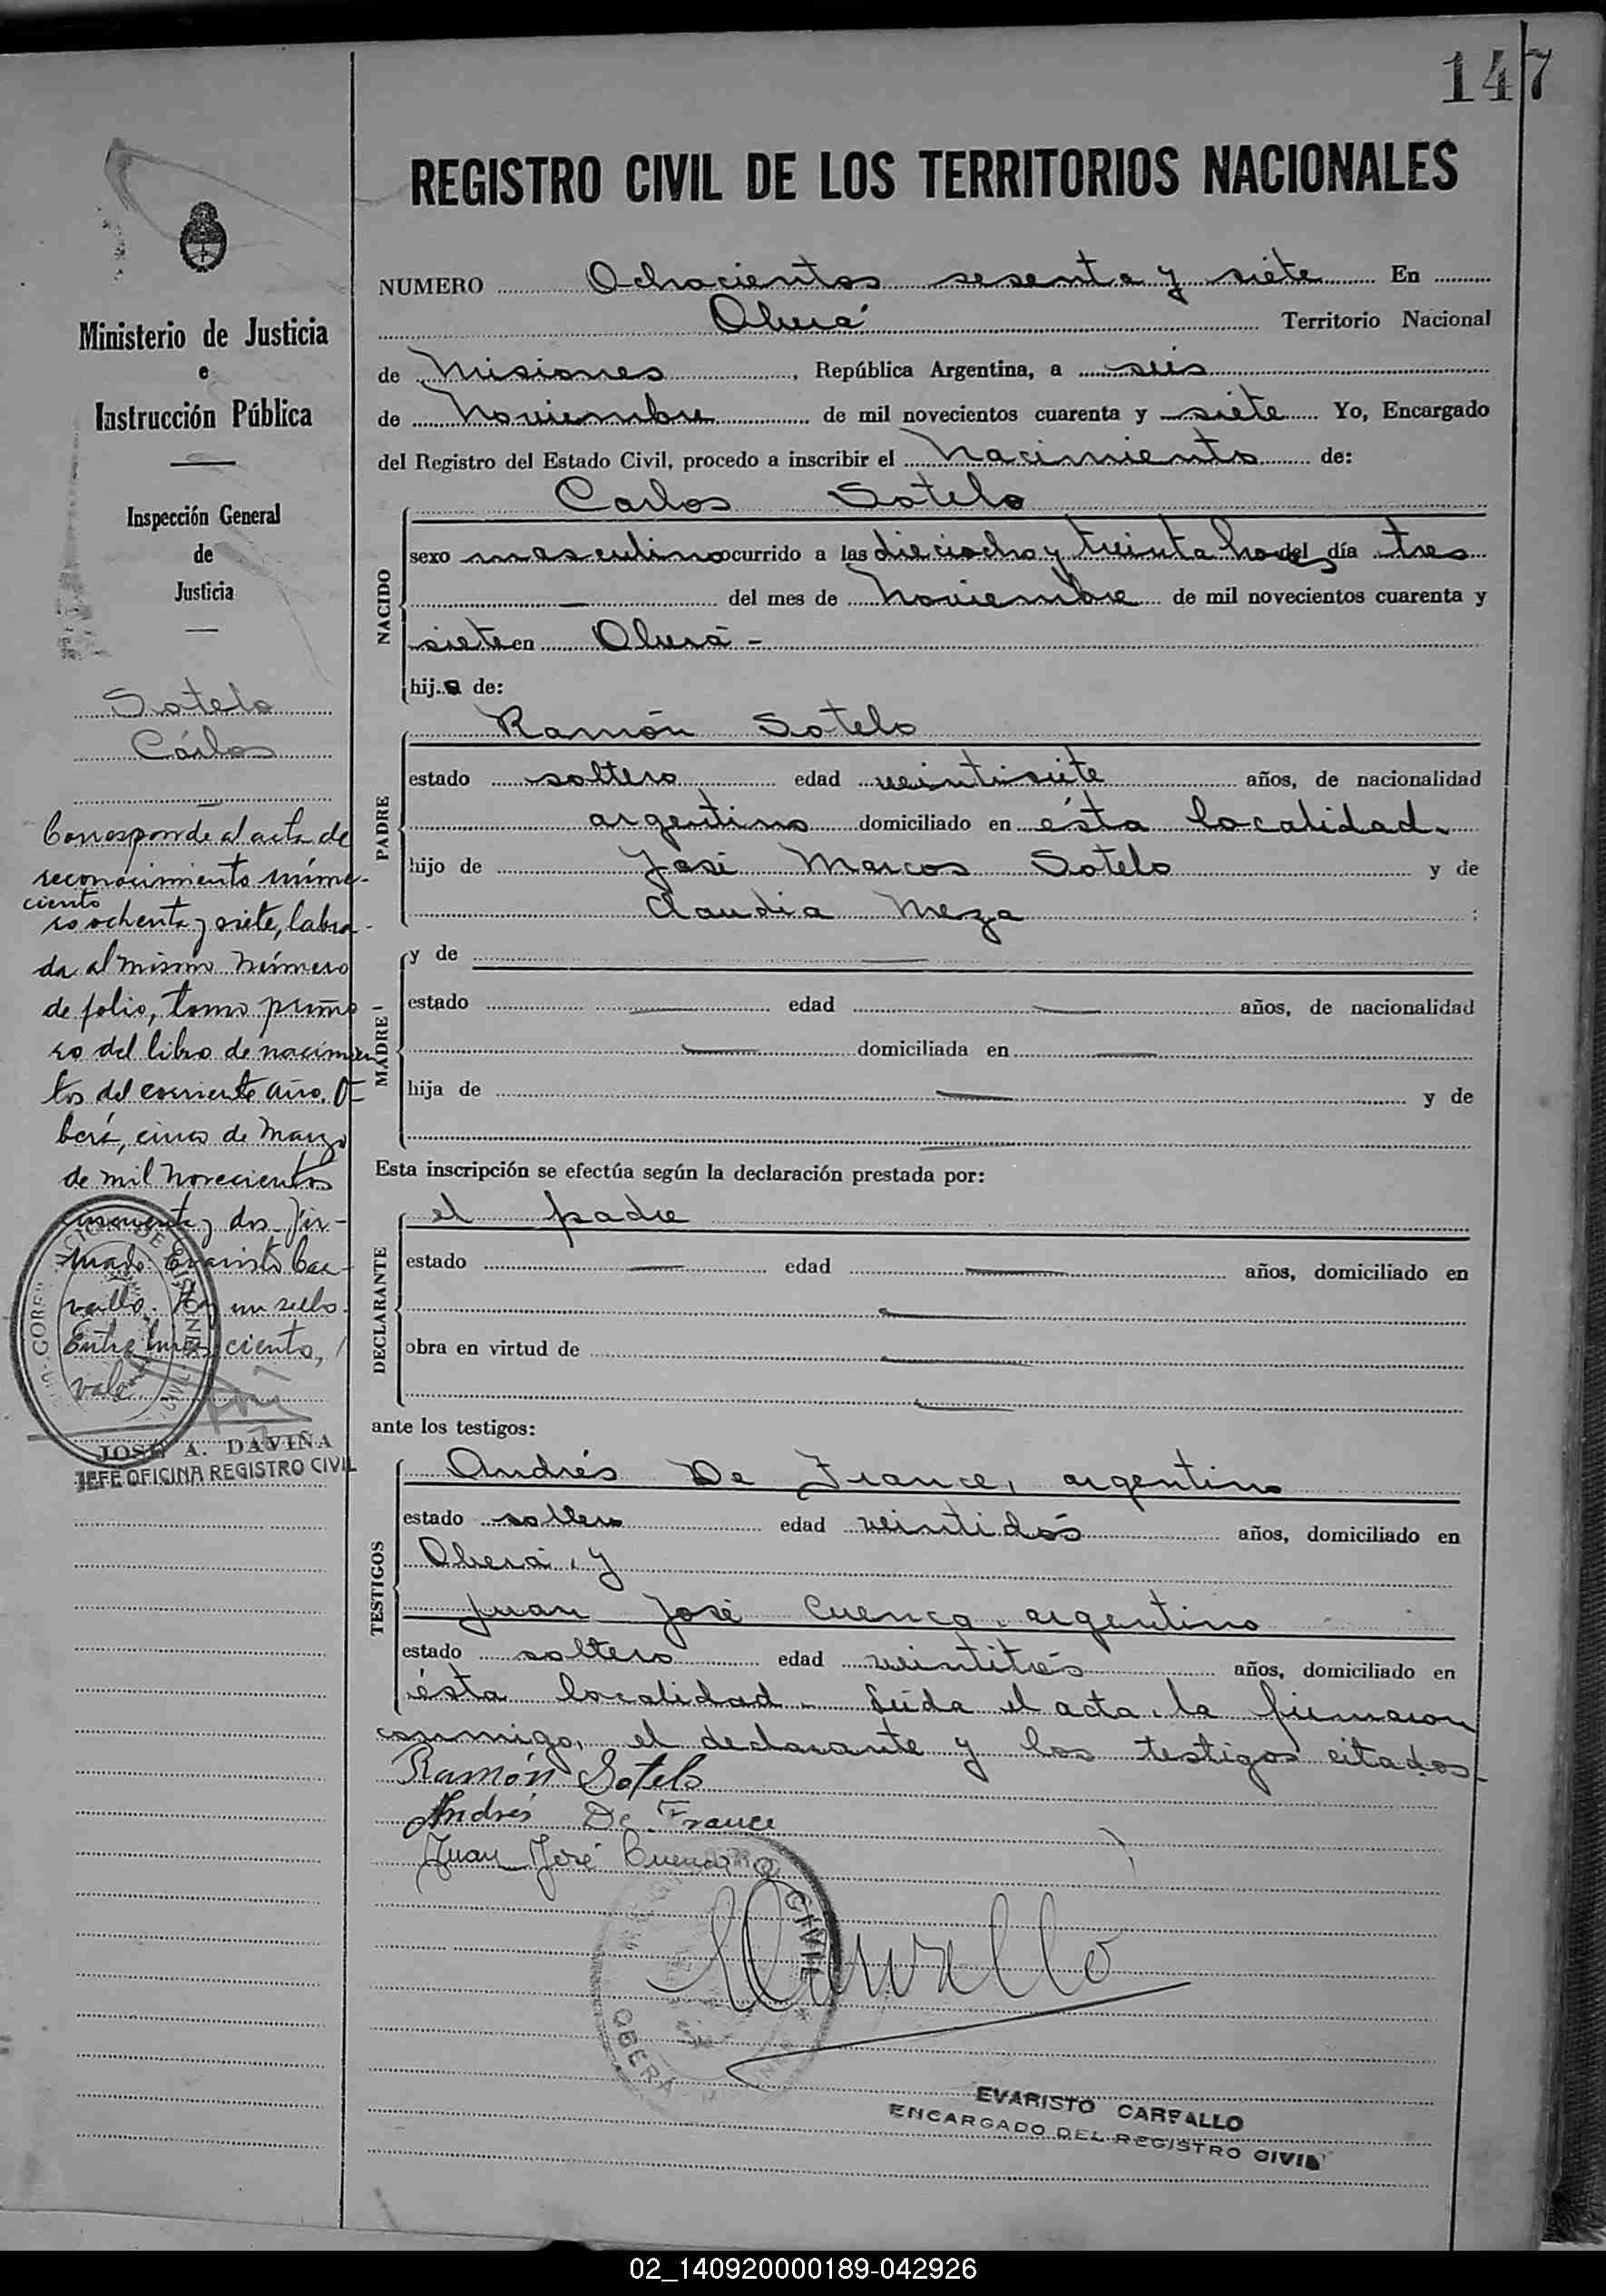 147
REGISTRO CIVIL DE LOS TERRITORIOS NACIONALES
NUMERO Ochocientos sesenta y siete En
Oberá Territorio Nacional
de Misiones, República Argentina, a seis
de Noviembre de mil novecientos cuarenta y siete Yo, Encargado
del Registro del Estado Civil, procedo a inscribir el Nacimiento de:
NACIDO
Carlos Sotelo
sexo masculino ocurrido a las dieciocho y treinta horas del día tres
del mes de Noviembre de mil novecientos cuarenta y
siete en Oberá -
hijo de:
PADRE
Ramón Sotelo
estado soltero edad veintisiete años, de nacionalidad
argentino domiciliado en ésta localidad.
hijo de José Marcos Sotelo y de
Claudia Meza :
MADRE
y de —
estado — edad — años, de nacionalidad
— domiciliada en —
hija de — y de
—
Esta inscripción se efectúa según la declaración prestada por:
DECLARANTE
el padre
estado — edad — años, domiciliado en
—
obra en virtud de —
—
ante los testigos:
TESTIGOS
Andrés De France, argentino
estado soltero edad veintidós años, domiciliado en
Oberá, y
Juan José Cuenca, argentino
estado soltero edad veintitrés años, domiciliado en
ésta localidad - Leída el acta, la firmaron
conmigo, el declarante y los testigos citados -
Ramón Sotelo
Andrés De France
Juan José Cuenca
CIVIL
OBERÁ
Carvallo
EVARISTO CARVALLO
ENCARGADO DEL REGISTRO CIVIL
Ministerio de Justicia
e
Instrucción Pública
Inspección General
de
Justicia
Sotelo
Cárlos
—
Corresponde al acta de
reconocimiento núme-
ciento
ro ochenta y siete, labra-
da al mismo número
de folio, tomo prime
ro del libro de nacimien
tos del corriente año. O-
berá, cinco de Marzo
de mil novecientos
cincuenta y dos. Fir-
mado: Evaristo Car-
vallo. Hay un sello.
Entre líneas ciento,
vale
JOSÉ A. DAVIÑA
JEFE OFICINA REGISTRO CIVIL
02_140920000189-042926